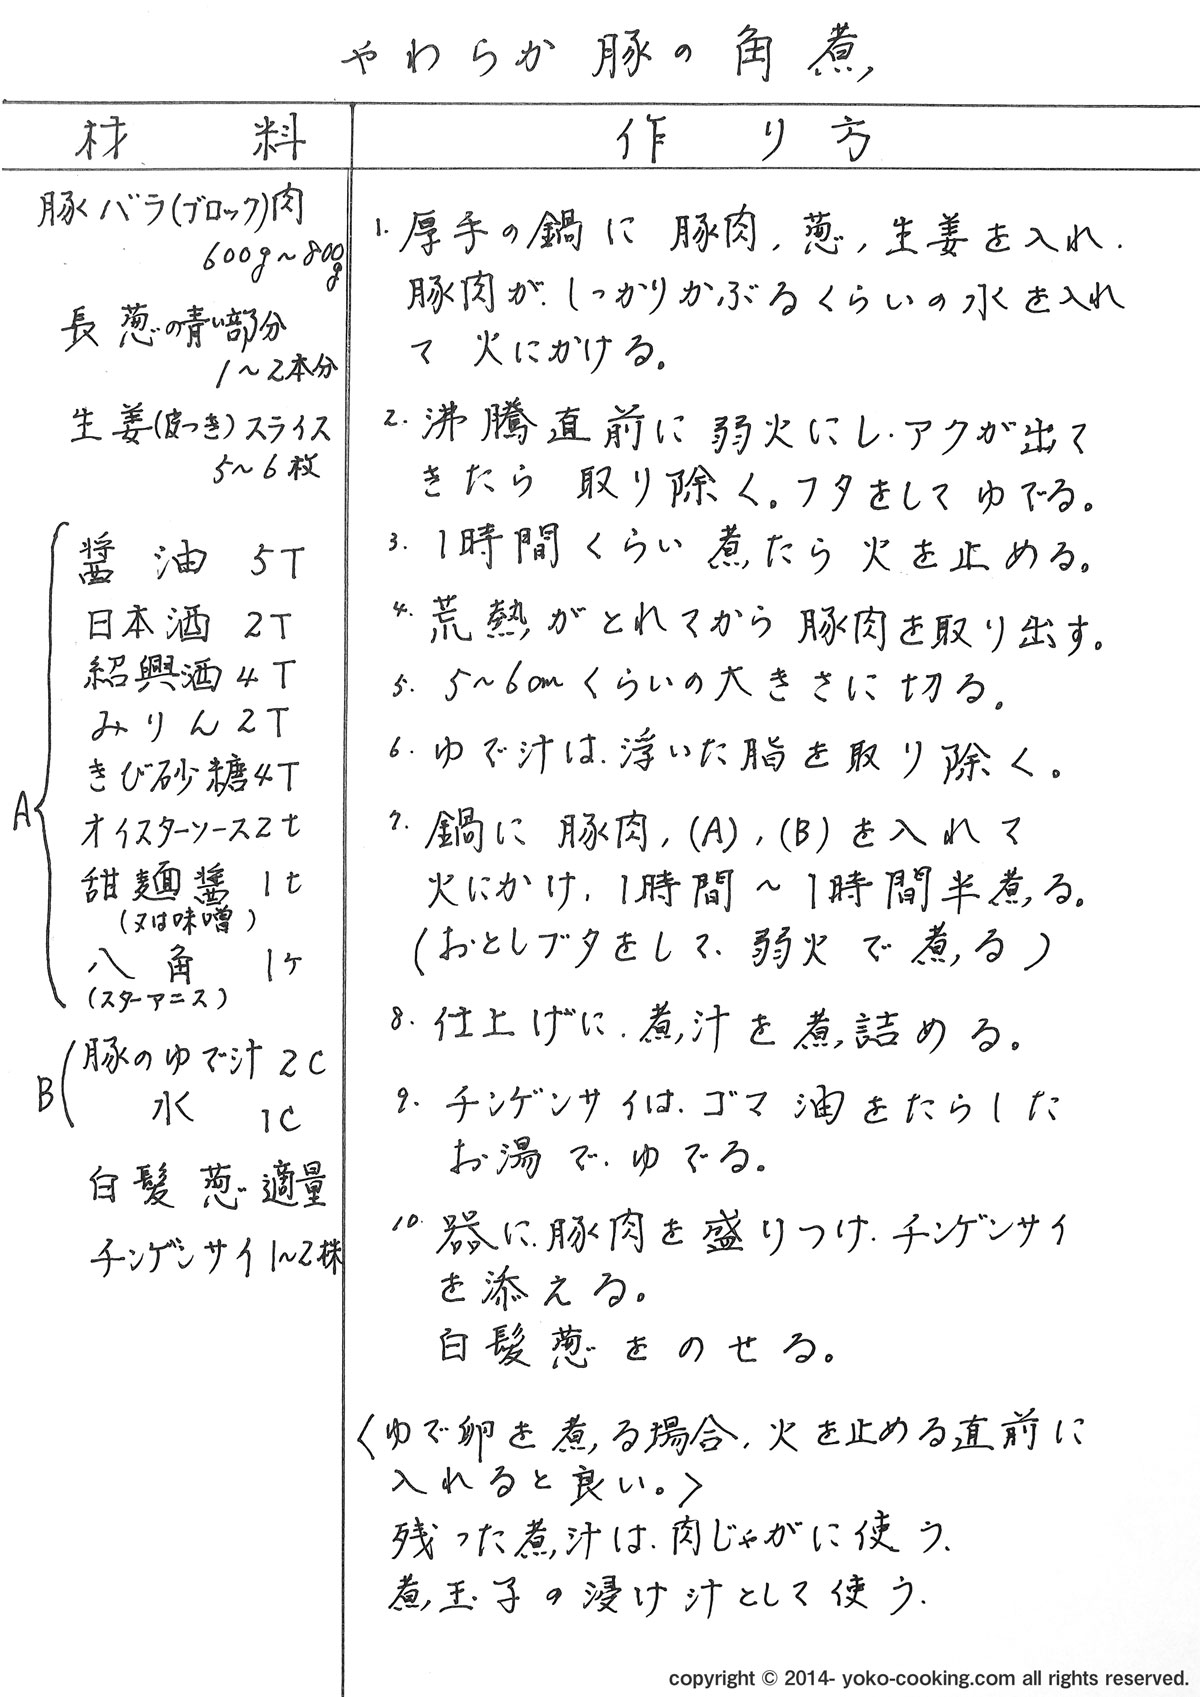 やわらか豚の角煮
材料
作り方
豚バラ(ブロック)肉
600g～800g
長葱の青い部分
1～2本分
生姜(皮つき)スライス
5～6枚
A
醤油 5T
日本酒 2T
紹興酒 4T
みりん 2T
きび砂糖 4T
オイスターソース 2t
甜麺醤 1t
(又は味噌)
八角 1ヶ
(スターアニス)
B
豚のゆで汁 2C
水 1C
白髪葱 適量
チンゲンサイ 1～2株
1. 厚手の鍋に 豚肉, 葱, 生姜を入れ.
豚肉が.しっかりかぶるくらいの水を入れ
て 火にかける。
2. 沸騰直前に 弱火にし.アクが出て
きたら 取り除く。フタをして ゆでる。
3. 1時間くらい 煮たら 火を止める。
4. 荒熱がとれてから 豚肉を取り出す。
5. 5～6cmくらいの大きさに 切る。
6. ゆで汁は.浮いた脂を取り除く。
7. 鍋に 豚肉, (A), (B)を入れて
火にかけ, 1時間～1時間半煮る。
(おとしブタをして、弱火で煮る)
8. 仕上げに.煮汁を煮詰める。
9. チンゲンサイは.ゴマ油をたらした
お湯で.ゆでる。
10. 器に.豚肉を盛りつけ.チンゲンサイ
を添える。
白髪葱をのせる。
〈ゆで卵を煮る場合, 火を止める直前に
入れると良い。〉
残った煮汁は.肉じゃがに使う.
煮玉子の浸け汁として使う.
copyright © 2014- yoko-cooking.com all rights reserved.